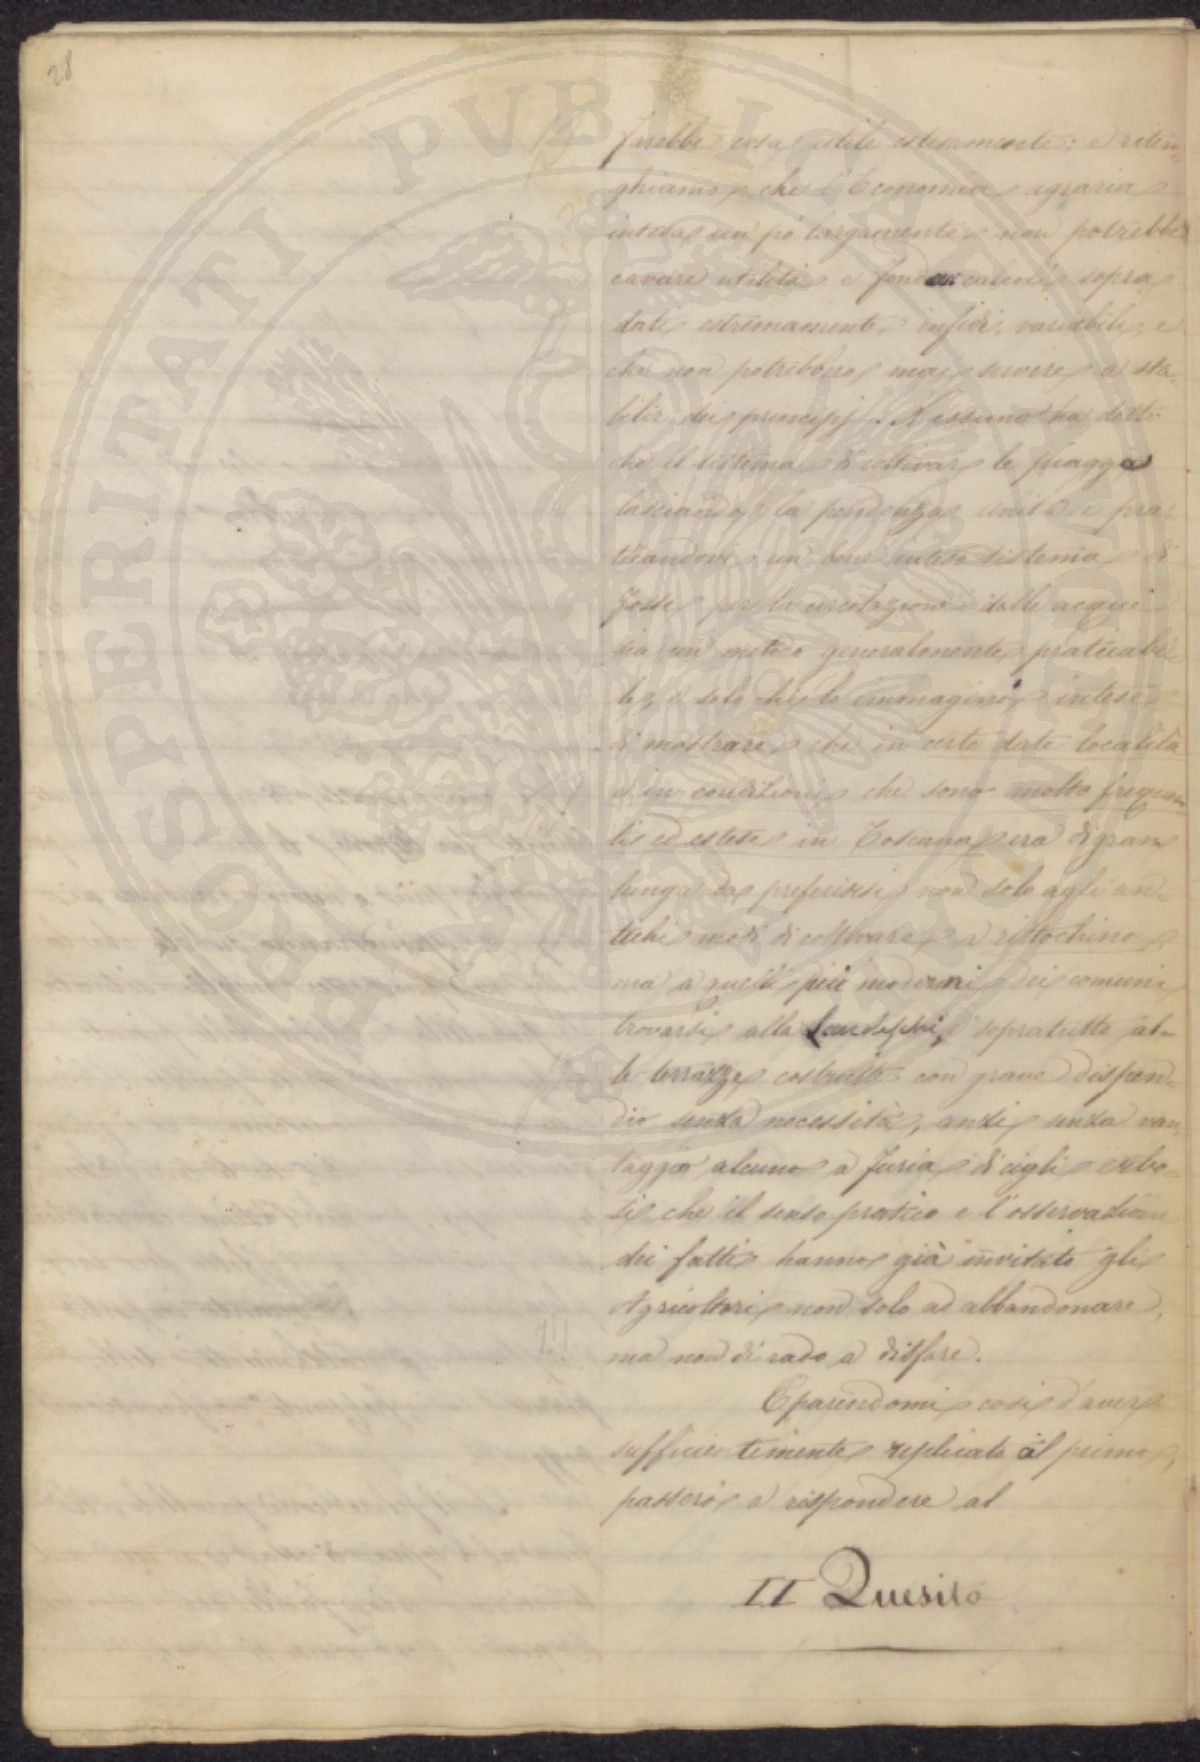 28
farebbe cosa utile estesamente; e riten-
ghiamo che l'Economia agraria
intesa un pò largamente non potrebbe
cavare utilità e fondar calcoli sopra
dati estremamente infidi, variabili, e
che non potrebbero mai servire a sta-
bilir dei principj. Nessuno ha detto
che il sistema di coltivar le piagge
lasciando la pendenza unita e pra-
ticandovi un bene inteso sistema di
fosse per la circolazione delle acque
sia un metodo generalmente praticabi-
le, e solo chi lo immaginò intese
di mostrare che in certe date località
e in condizioni che sono molto frequen-
ti ed estese in Toscana era di gran
lunga da preferirsi non solo agli an-
tichi modi di coltivare a rittochino
ma a quelli più moderni dei comuni
trovarsi alla Landeschi, e sopratutto al-
le terrazze costruite con grave dispen-
dio senza necessità, anzi senza van-
taggio alcuno a furia di cigli erbo-
si che il senso pratico e l'osservazione
dei fatti hanno già invitato gli
Agricoltori non solo ad abbandonare,
ma non di rado a disfare.
E parendomi così d'aver
sufficientemente replicato al primo,
passerò a rispondere al
II Quesito
PROSPERITATI PUBLICAE AUGENDAE